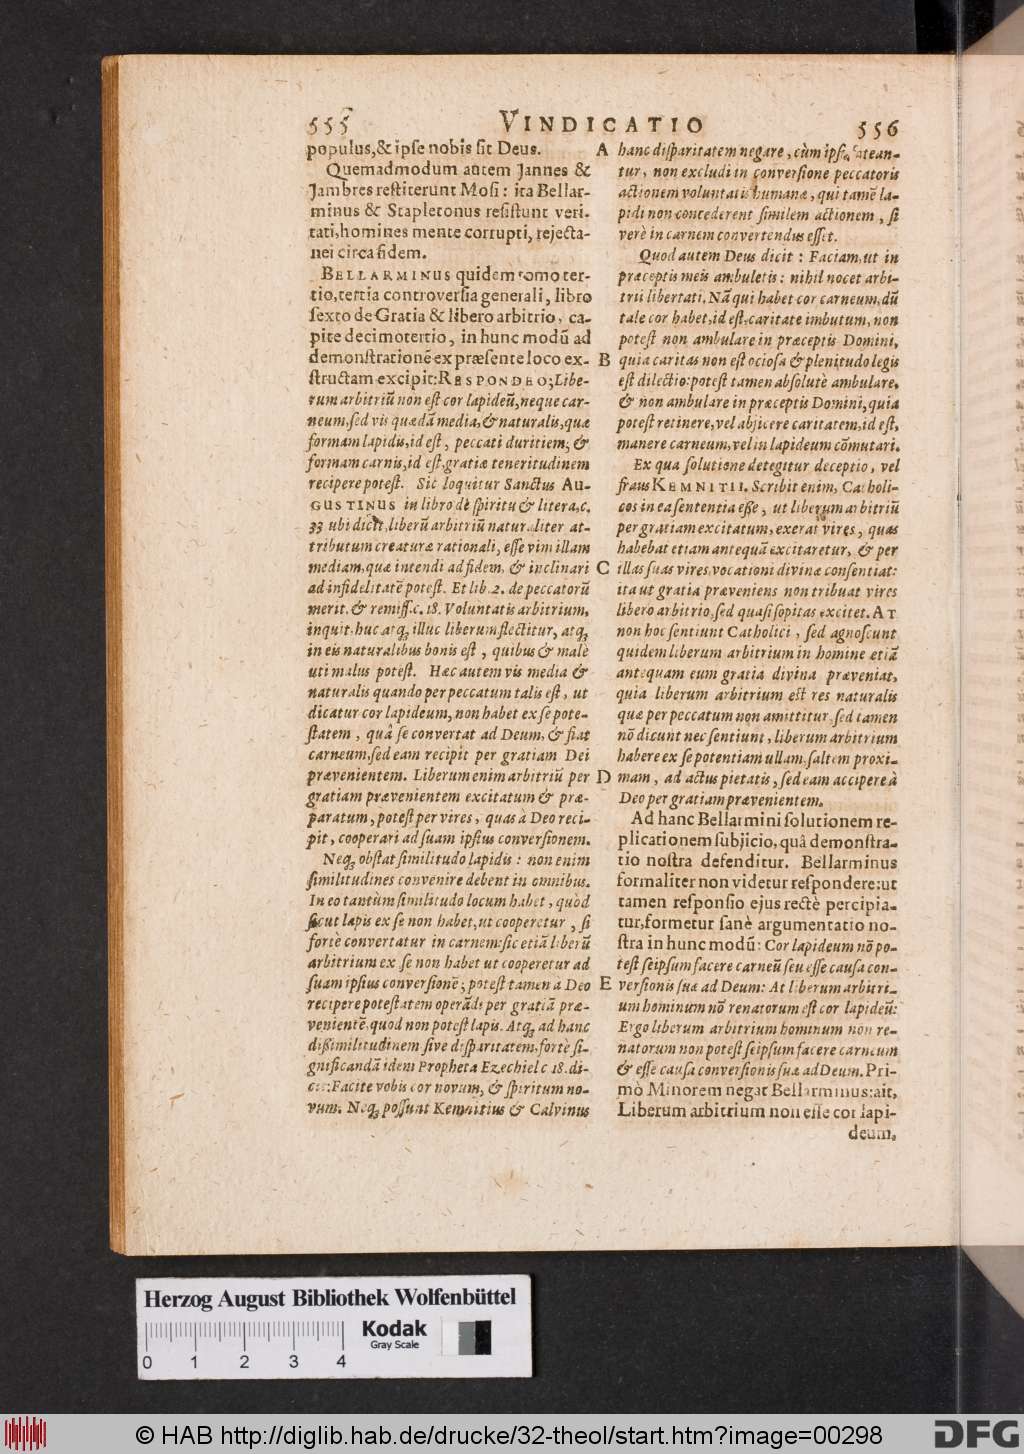 555 VINDICATIO 556
populus, & ipse nobis sit Deus.
Quemadmodum autem Jannes &
Jambres restiterunt Mosi: ita Bellar-
minus & Stapletonus resistunt veri-
tati, homines mente corrupti, rejecta-
nei circa fidem.
BELLARMINUS quidem tomo ter-
tio, tertia controversia generali, libro
sexto de Gratia & libero arbitrio, ca-
pite decimotertio, in hunc modũ ad
demonstrationẽ ex præsente loco ex-
structam excipit: RESPONDEO; Libe-
rum arbitriũ non est cor lapideũ, neque car-
neum, sed vis quædã media, & naturalis, quæ
formam lapidis, id est, peccati duritiem, &
formam carnis, id est, gratiæ teneritudinem
recipere potest. Sic loquitur Sanctus AU-
GUSTINUS in libro de spiritu & litera, c.
33 ubi dicit, liberũ arbitriũ naturaliter at-
tributum creaturæ rationali, esse vim illam
mediam, quæ intendi ad fidem, & inclinari
ad infidelitatẽ potest. Et lib. 2. de peccatorũ
merit. & remiss. c. 18. Voluntatis arbitrium,
inquit, huc atq; illuc liberum flectitur, atq;
in eis naturalibus bonis est, quibus & malè
uti malus potest. Hæc autem vis media &
naturalis quando per peccatum talis est, ut
dicatur cor lapideum, non habet ex se pote-
statem, quâ se convertat ad Deum, & fiat
carneum, sed eam recipit per gratiam Dei
prævenientem. Liberum enim arbitriũ per
gratiam prævenientem excitatum & præ-
paratum, potest per vires, quas à Deo reci-
pit, cooperari ad suam ipsius conversionem.
Neq; obstat similitudo lapidis: non enim
similitudines convenire debent in omnibus.
In eo tantùm similitudo locum habet, quòd
sicut lapis ex se non habet, ut cooperetur, si
fortè convertatur in carnem: sic etiã liberũ
arbitrium ex se non habet ut cooperetur ad
suam ipsius conversionẽ; potest tamen à Deo
recipere potestatem operãdi per gratiã præ-
venientẽ, quod non potest lapis. Atq; ad hanc
dissimilitudinem sive disparitatem, fortè si-
gnificandã idem Propheta Ezechiel c 18. di-
cit: Facite vobis cor novum, & spiritum no-
vum. Neq; possunt Kemnitius & Calvinus
A hanc disparitatem negare, cùm ipsi fatean-
tur, non excludi in conversione peccatoris
actionem voluntatis humanæ, qui tamẽ la-
pidi non concederent similem actionem, si
verè in carnem convertendus esset.
Quod autem Deus dicit: Faciam, ut in
præceptis meis ambuletis: nihil nocet arbi-
trii libertati, Nã qui habet cor carneum, dũ
tale cor habet, id est, caritate imbutum, non
potest non ambulare in præceptis Domini,
B quia caritas non est ociosa & plenitudo legis
est dilectio: potest tamen absolutè ambulare,
& non ambulare in præceptis Domini, quia
potest retinere, vel abjicere caritatem, id est,
manere carneum, vel in lapideum cõmutari.
Ex qua solutione detegitur deceptio, vel
fraus KEMNITII. Scribit enim, Catholi-
cos in ea sententia esse, ut liberum arbitriũ
per gratiam excitatum, exerat vires, quas
habebat etiam antequã excitaretur, & per
C illas suas vires, vocationi divinæ consentiat:
ita ut gratia præveniens non tribuat vires
libero arbitrio, sed quasi sopitas excitet. AT
non hoc sentiunt Catholici, sed agnoscunt
quidem liberum arbitrium in homine etiã
antequam eum gratia divina præveniat,
quia liberum arbitrium est res naturalis
quæ per peccatum non amittitur, sed tamen
nõ dicunt nec sentiunt, liberum arbitrium
habere ex se potentiam ullam, saltem proxi-
D mam, ad actus pietatis, sed eam accipere à
Deo per gratiam prævenientem.
Ad hanc Bellarmini solutionem re-
plicationem subjicio, quâ demonstra-
tio nostra defenditur. Bellarminus
formaliter non videtur respondere: ut
tamen responsio ejus rectè percipia-
tur, formetur sanè argumentatio no-
stra in hunc modũ: Cor lapideum nõ po-
test seipsum facere carneũ seu esse causa con-
E versionis suæ ad Deum: At liberum arbitri-
um hominum nõ renatorum est cor lapideũ:
Ergo liberum arbitrium hominum non re-
natorum non potest seipsum facere carneum
& esse causa conversionis suæ ad Deum. Pri-
mò Minorem negat Bellarminus: ait,
Liberum arbitrium non esse cor lapi-
deum.
Herzog August Bibliothek Wolfenbüttel
Kodak
Gray Scale
0 1 2 3 4
© HAB http://diglib.hab.de/drucke/32-theol/start.htm?image=00298
DFG